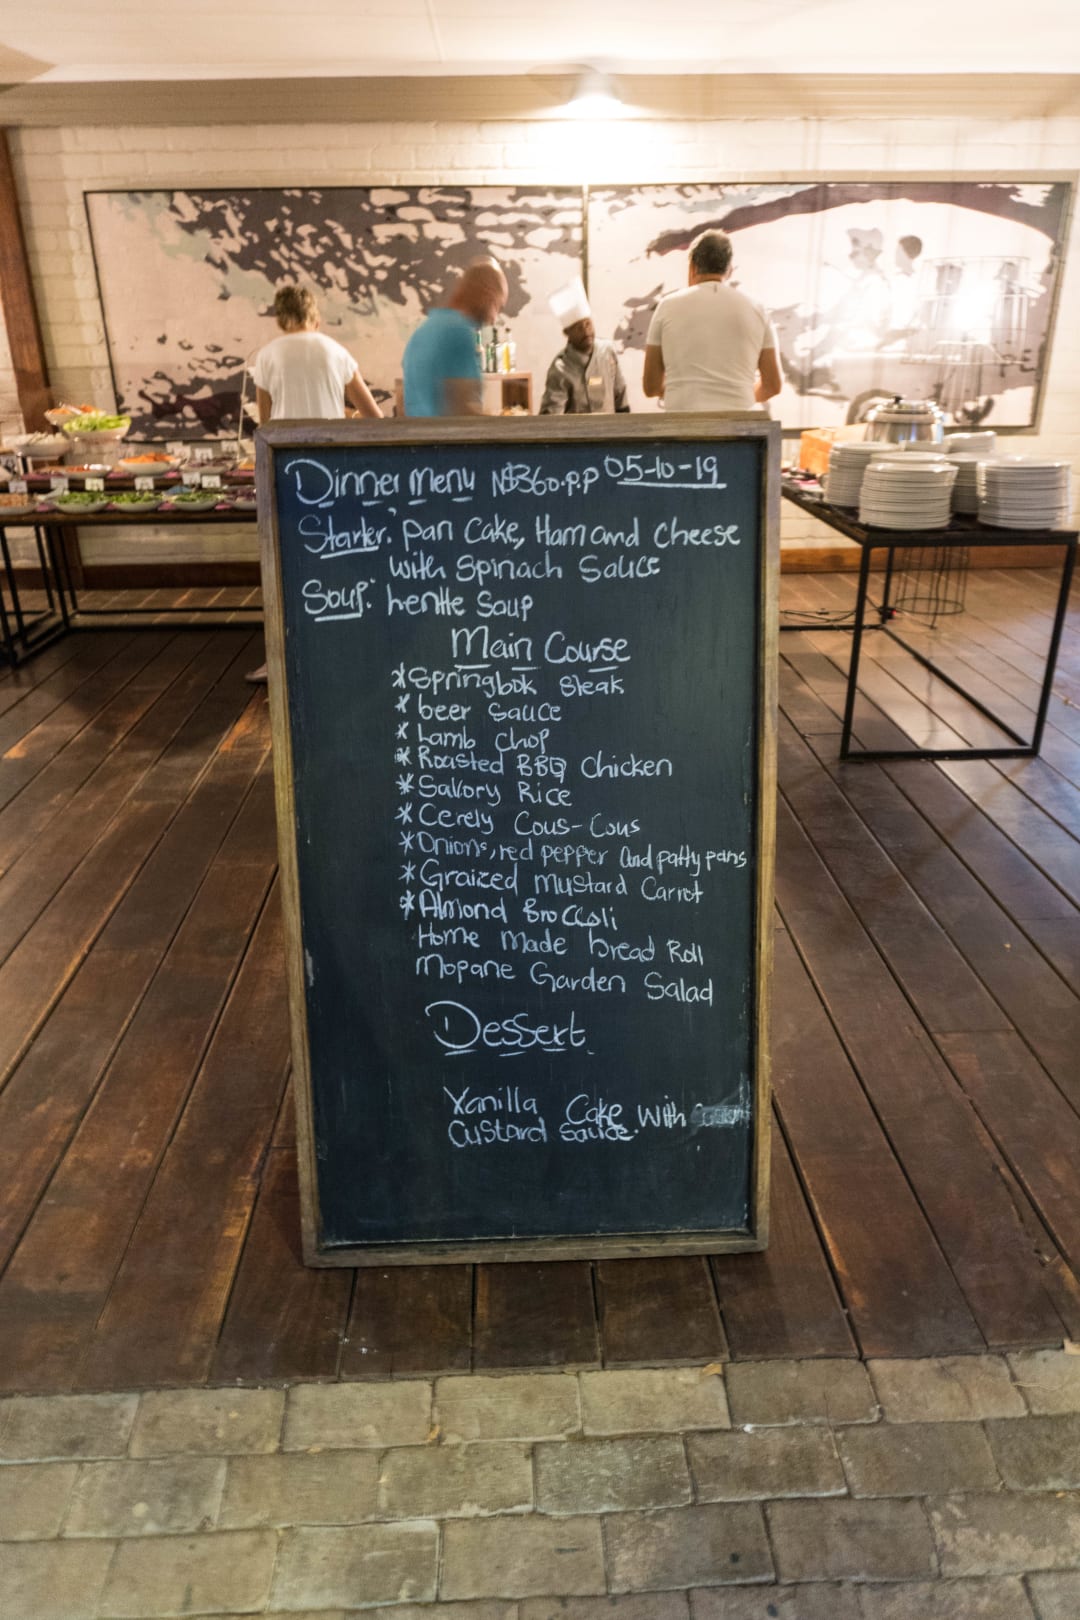 Dinner Menu N$360.p.p 05-10-19
Starter: Pan Cake, Ham and Cheese
with Spinach Sauce
Soup: Lentle Soup
Main Course
*Springbok Steak
* beer sauce
* Lamb Chop
* Roasted BBQ Chicken
*Savory Rice
* Cerely Cous-Cous
*Onions, red pepper and patty pans
*Graized Mustard Carrot
*Almond Broccoli
Home Made bread Roll
Mopane Garden Salad
Dessert
Vanilla Cake with
Custard sauce.